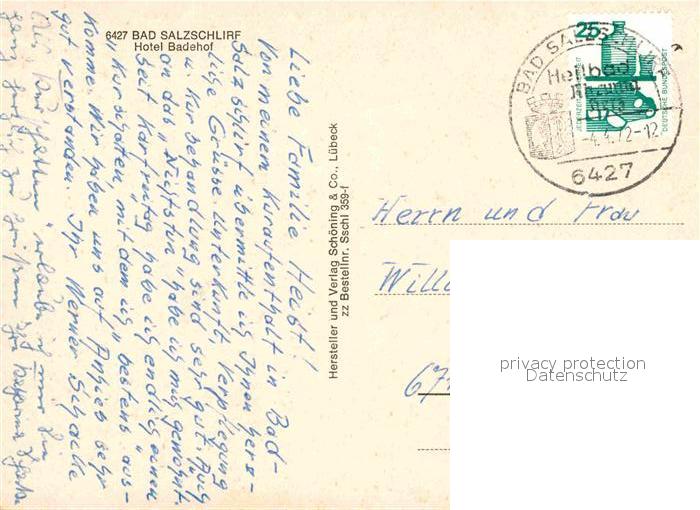 6427 BAD SALZSCHLIRF
Hotel Badehof
Liebe Familie Hebst!
Von meinem Kuraufenthalt in Bad-
Salzschlirf übermittle ich Ihnen herz-
liche Grüsse. Unterkunft, Verpflegung
u. Kurbehandlung sind sehr gut. Auch
an das "Nichtstun" habe ich mich gewöhnt.
Seit Karfreitag habe ich endlich einen
"Kurschatten" mit dem ich bestens aus-
komme. Wir haben uns auf Anhieb sehr
gut verstanden. Ihr Werner
Der "Kurschatten" erlaubt sich nur Sie
ganz herzlich zu grüßen Ihre
Hersteller und Verlag Schöning & Co., Lübeck
zz Bestellnr. Sschl 359-f
25
JEDERZEIT SICHERHEIT
DEUTSCHE BUNDESPOST
BAD SALZSCHLIRF
Heilbad
-4.4.72-12
6427
Herrn und Frau
Will
67
privacy protection
Datenschutz